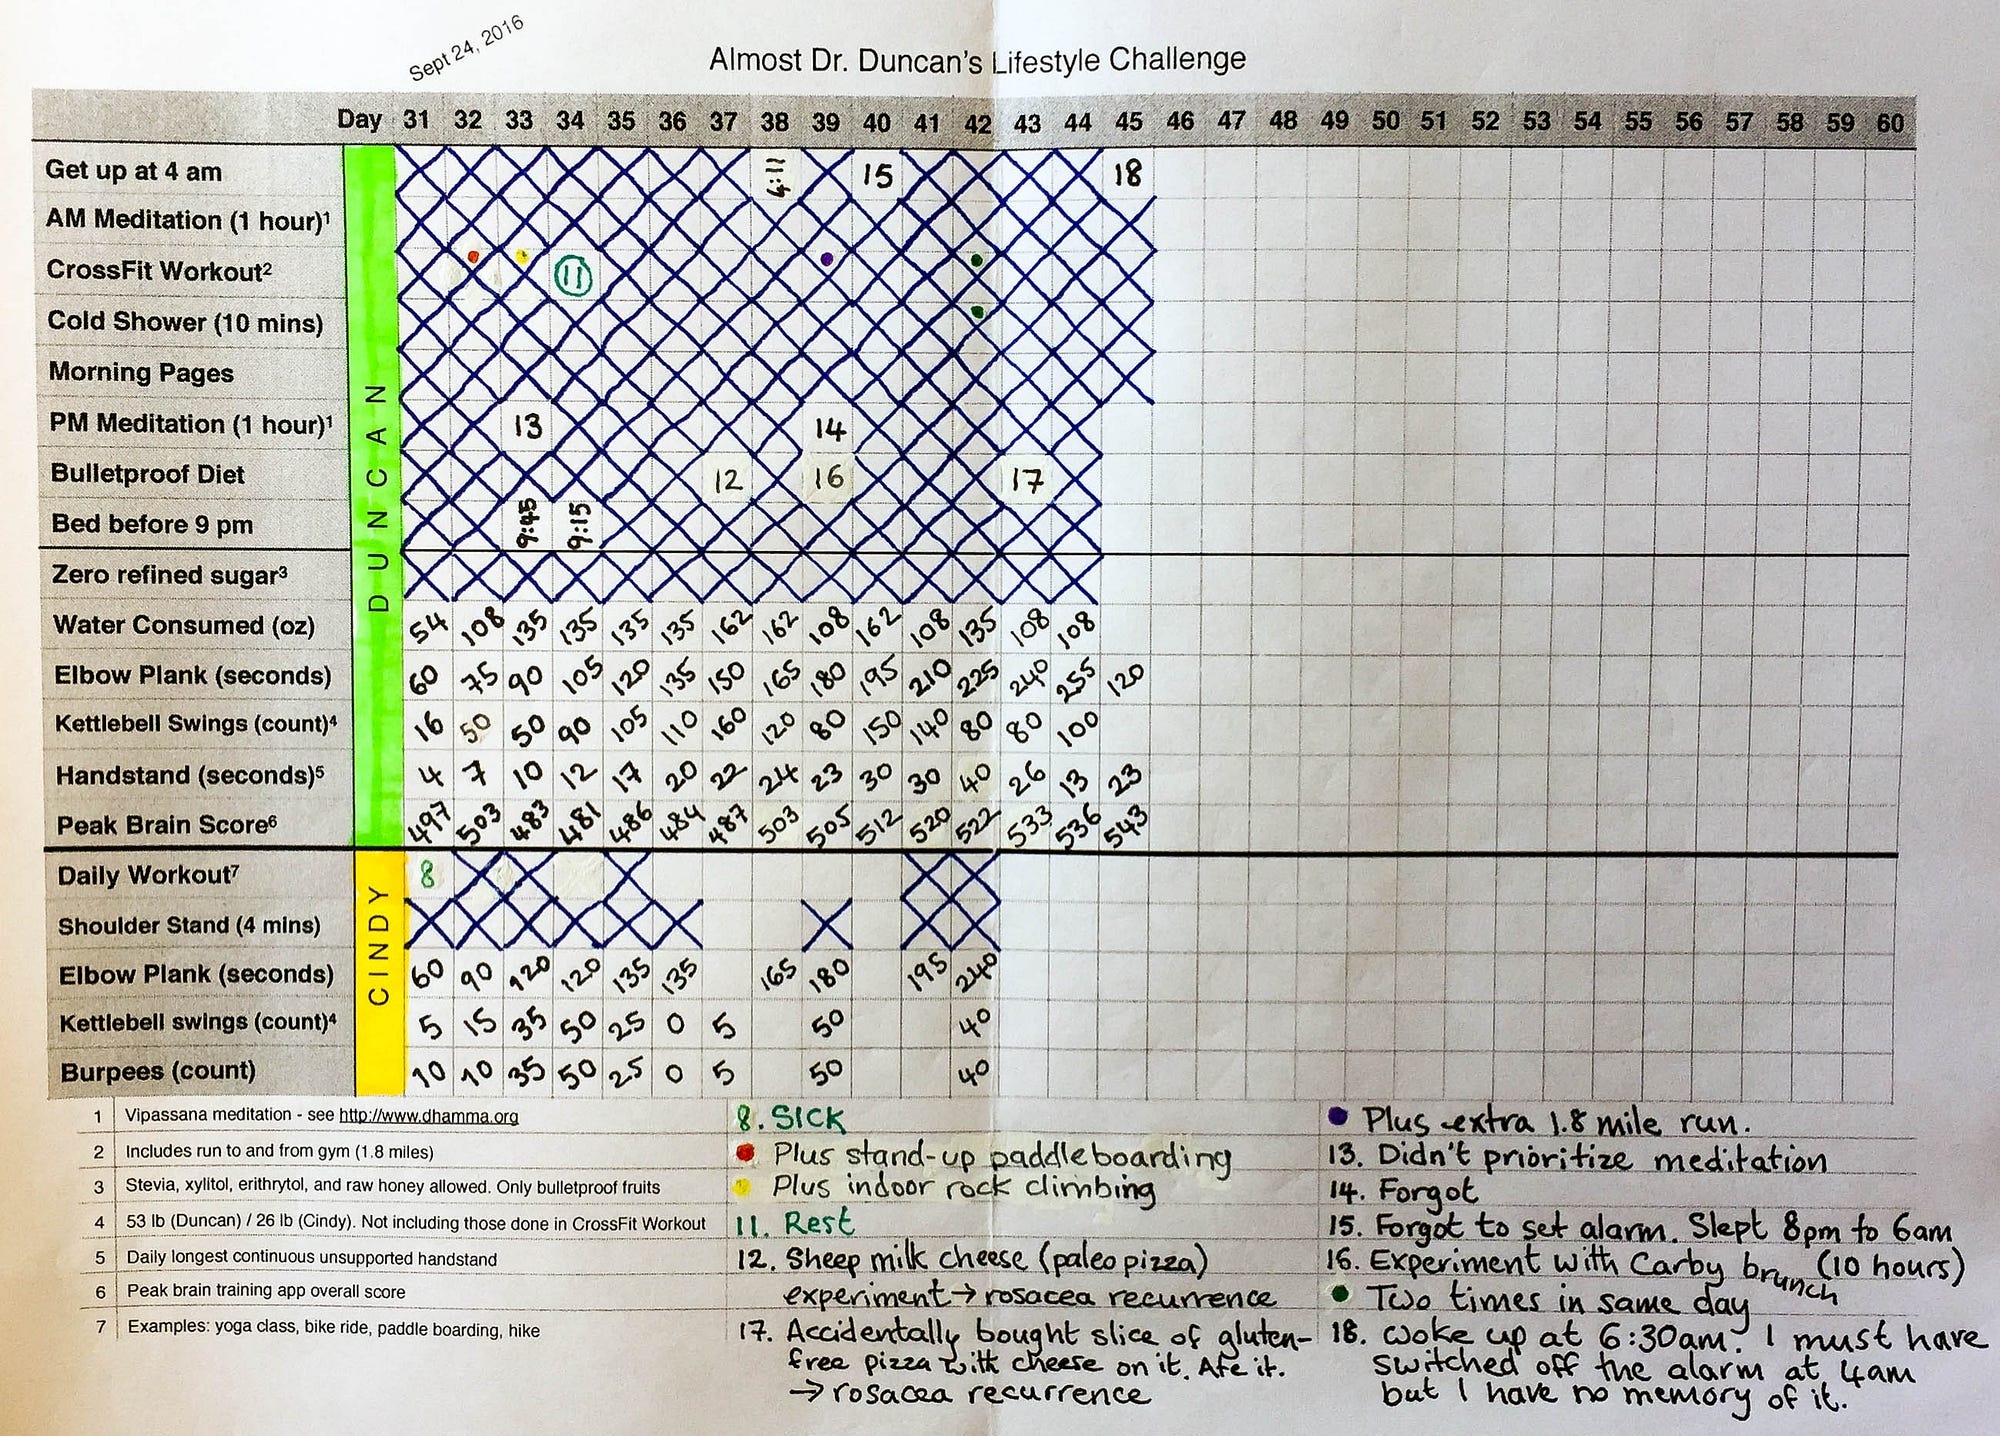 Sept 24, 2016
Almost Dr. Duncan's Lifestyle Challenge
Day 31 32 33 34 35 36 37 38 39 40 41 42 43 44 45 46 47 48 49 50 51 52 53 54 55 56 57 58 59 60
DUNCAN
Get up at 4 am 4:11 15 18
AM Meditation (1 hour)¹
CrossFit Workout² 11
Cold Shower (10 mins)
Morning Pages
PM Meditation (1 hour)¹ 13 14
Bulletproof Diet 12 16 17
Bed before 9 pm 9:45 9:15
Zero refined sugar³
Water Consumed (oz) 54 108 135 135 135 135 162 162 108 162 108 135 108 108
Elbow Plank (seconds) 60 75 90 105 120 135 150 165 180 195 210 225 240 255 120
Kettlebell Swings (count)⁴ 16 50 50 90 105 110 160 120 80 150 140 80 80 100
Handstand (seconds)⁵ 4 7 10 12 17 20 22 24 23 30 30 40 26 13 23
Peak Brain Score⁶ 497 503 483 481 486 484 487 503 505 512 520 522 533 536 543
CINDY
Daily Workout⁷ 8
Shoulder Stand (4 mins)
Elbow Plank (seconds) 60 90 120 120 135 135 165 180 195 240
Kettlebell swings (count)⁴ 5 15 35 50 25 0 5 50 40
Burpees (count) 10 10 35 50 25 0 5 50 40
1 Vipassana meditation - see http://www.dhamma.org
2 Includes run to and from gym (1.8 miles)
3 Stevia, xylitol, erithrytol, and raw honey allowed. Only bulletproof fruits
4 53 lb (Duncan) / 26 lb (Cindy). Not including those done in CrossFit Workout
5 Daily longest continuous unsupported handstand
6 Peak brain training app overall score
7 Examples: yoga class, bike ride, paddle boarding, hike
8. SICK
Plus stand-up paddleboarding
Plus indoor rock climbing
11. Rest
12. Sheep milk cheese (paleo pizza)
experiment → rosacea recurrence
17. Accidentally bought slice of gluten-
free pizza with cheese on it. Ate it.
→ rosacea recurrence
Plus extra 1.8 mile run.
13. Didn't prioritize meditation
14. Forgot
15. Forgot to set alarm. Slept 8pm to 6am
(10 hours)
16. Experiment with Carby brunch
Two times in same day
18. Woke up at 6:30am. I must have
switched off the alarm at 4am
but I have no memory of it.